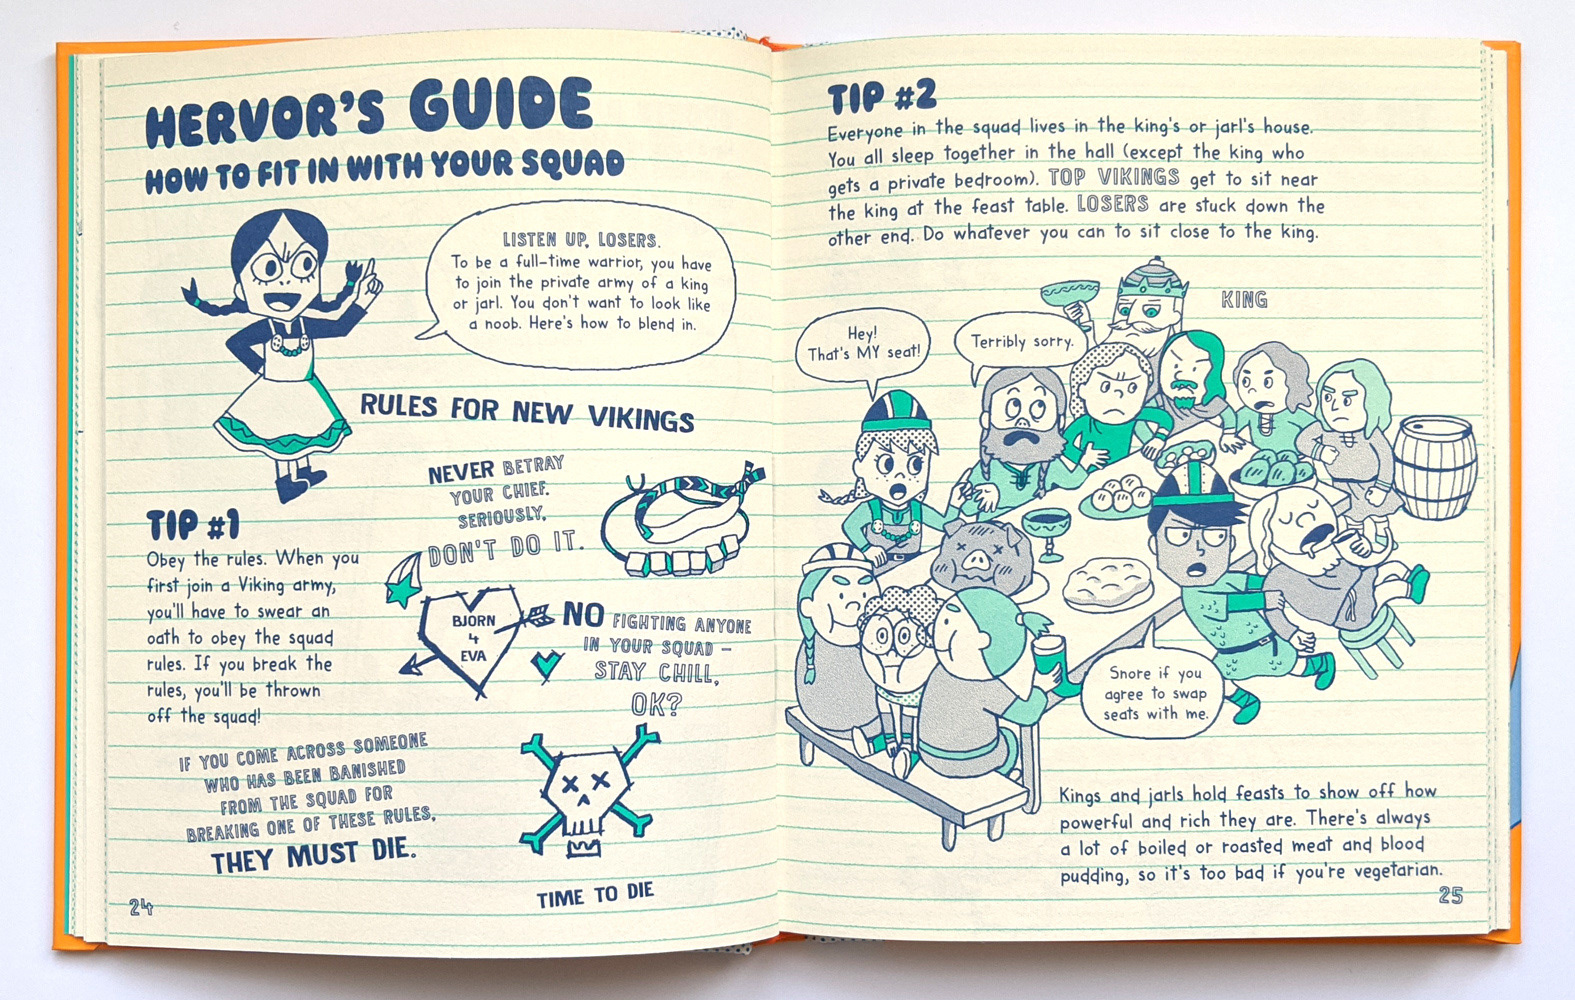 HERVOR'S GUIDE
HOW TO FIT IN WITH YOUR SQUAD
LISTEN UP, LOSERS.
To be a full-time warrior, you have
to join the private army of a king
or jarl. You don't want to look like
a noob. Here's how to blend in.
RULES FOR NEW VIKINGS
NEVER BETRAY
YOUR CHIEF.
SERIOUSLY,
DON'T DO IT.
TIP #1
Obey the rules. When you
first join a Viking army,
you'll have to swear an
oath to obey the squad
rules. If you break the
rules, you'll be thrown
off the squad!
BJORN
4
EVA
NO FIGHTING ANYONE
IN YOUR SQUAD –
STAY CHILL,
OK?
IF YOU COME ACROSS SOMEONE
WHO HAS BEEN BANISHED
FROM THE SQUAD FOR
BREAKING ONE OF THESE RULES,
THEY MUST DIE.
TIME TO DIE
24
TIP #2
Everyone in the squad lives in the king's or jarl's house.
You all sleep together in the hall (except the king who
gets a private bedroom). TOP VIKINGS get to sit near
the king at the feast table. LOSERS are stuck down the
other end. Do whatever you can to sit close to the king.
KING
Hey!
That's MY seat!
Terribly sorry.
Snore if you
agree to swap
seats with me.
Kings and jarls hold feasts to show off how
powerful and rich they are. There's always
a lot of boiled or roasted meat and blood
pudding, so it's too bad if you're vegetarian.
25